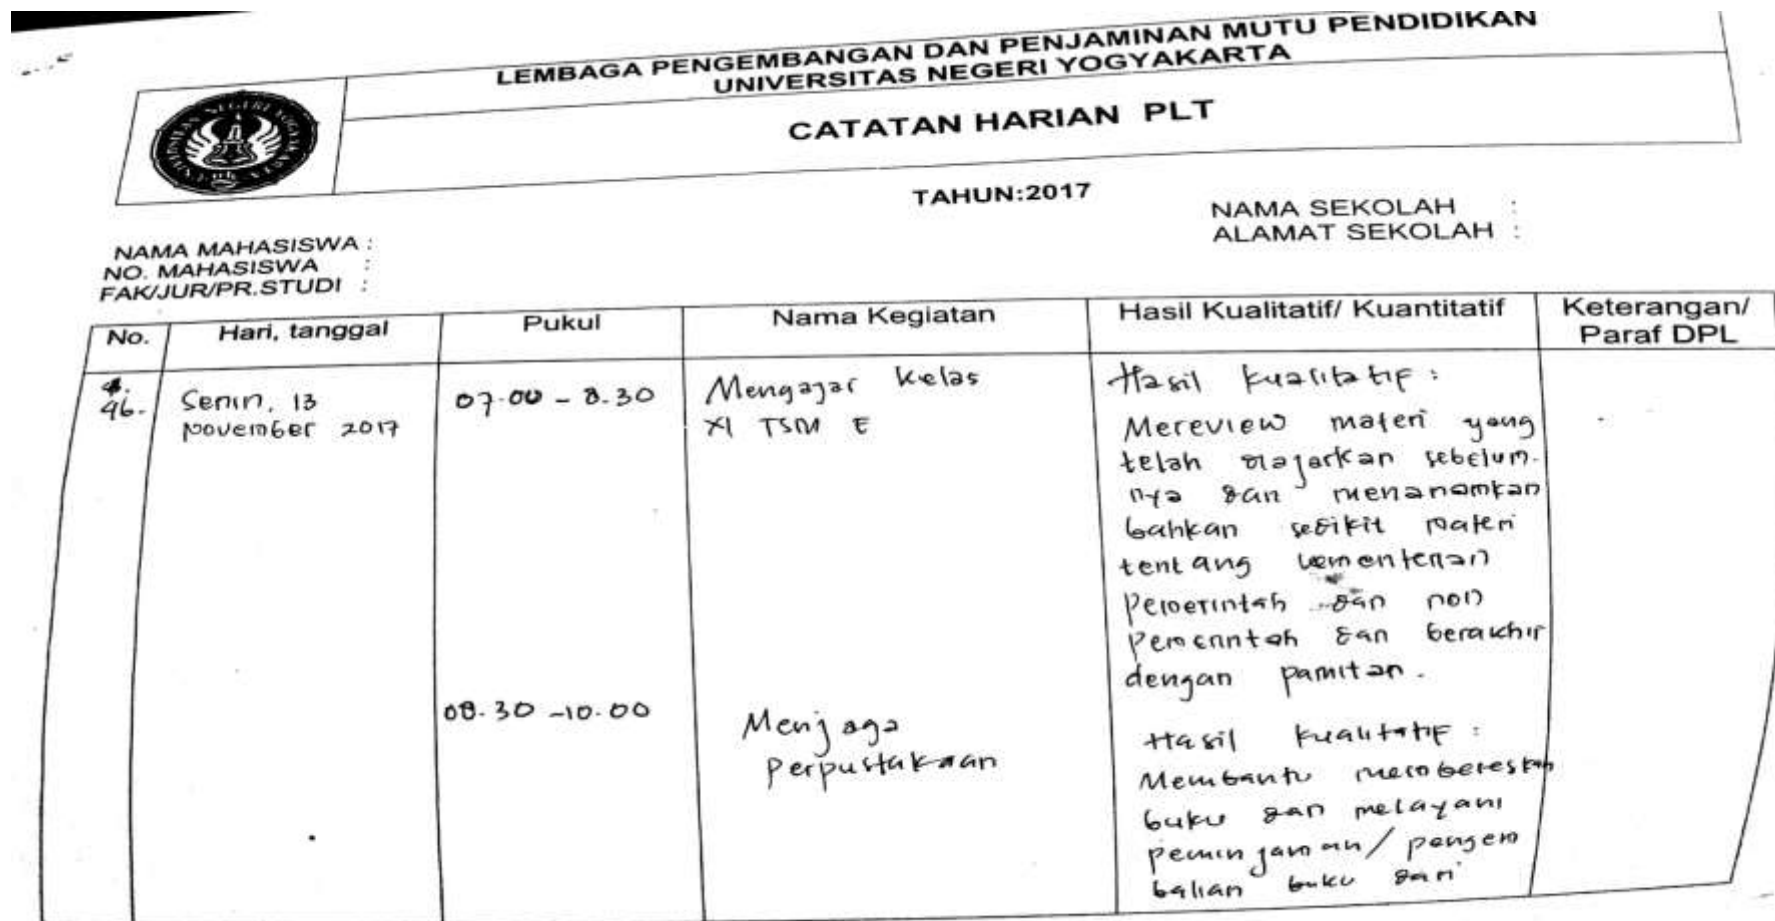 LEMBAGA PENGEMBANGAN DAN PENJAMINAN MUTU PENDIDIKAN
UNIVERSITAS NEGERI YOGYAKARTA
CATATAN HARIAN PLT
TAHUN:2017
NAMA SEKOLAH :
ALAMAT SEKOLAH :
NAMA MAHASISWA :
NO. MAHASISWA :
FAK/JUR/PR.STUDI :
No. Hari, tanggal Pukul Nama Kegiatan Hasil Kualitatif/ Kuantitatif Keterangan/
Paraf DPL
46. Senin, 13
November 2017
07.00 - 8.30
Mengajar Kelas
XI TSM E
Hasil Kualitatif :
Mereview materi yang
telah diajarkan sebelum-
nya dan menanamkan
bahkan sedikit materi
tentang kementerian
Pemerintah dan non
Pemerintah dan berakhir
dengan pamitan.
08.30 - 10.00
Menjaga
Perpustakaan
Hasil Kualitatif :
Membantu membereskan
buku dan melayani
peminjaman / pengem
balian buku dari